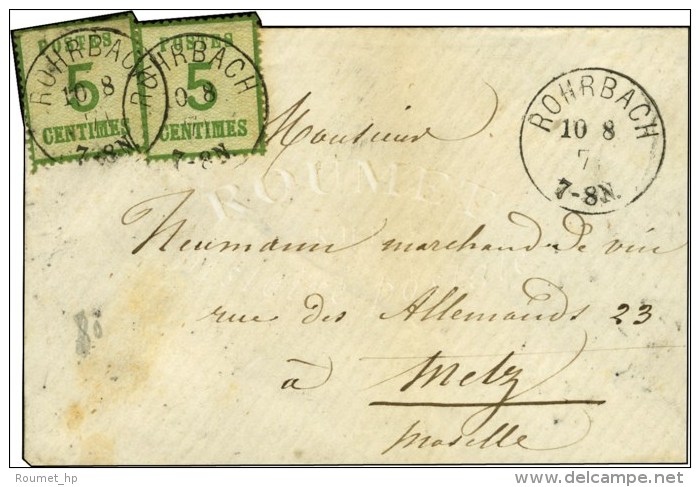 POSTES POSTES
5 5
CENTIMES CENTIMES
ROHRBACH
10 8
7-8N.
ROHRBACH
0 8
7-8N.
ROHRBACH
10 8
7
7-8N.
Monsieur
ROUMET
Neumann marchand de vin
rue des Allemands 23
à Metz
Moselle
80
Roumet_hp
www.delcampe.net